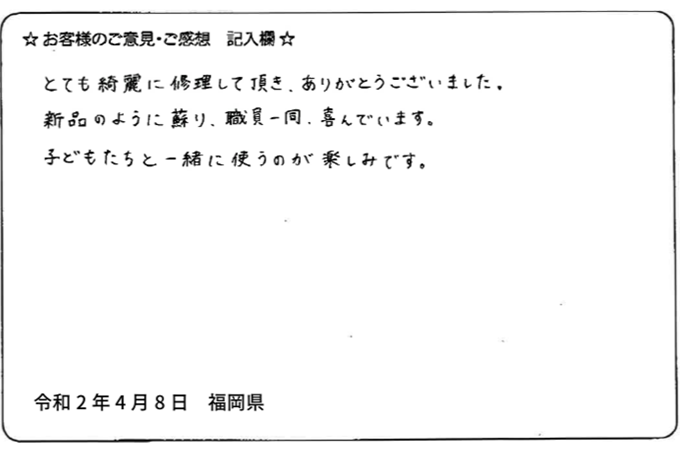 ☆お客様のご意見・ご感想 記入欄☆
とても綺麗に修理して頂き、ありがとうございました。
新品のように蘇り、職員一同、喜んでいます。
子どもたちと一緒に使うのが楽しみです。
令和2年4月8日 福岡県